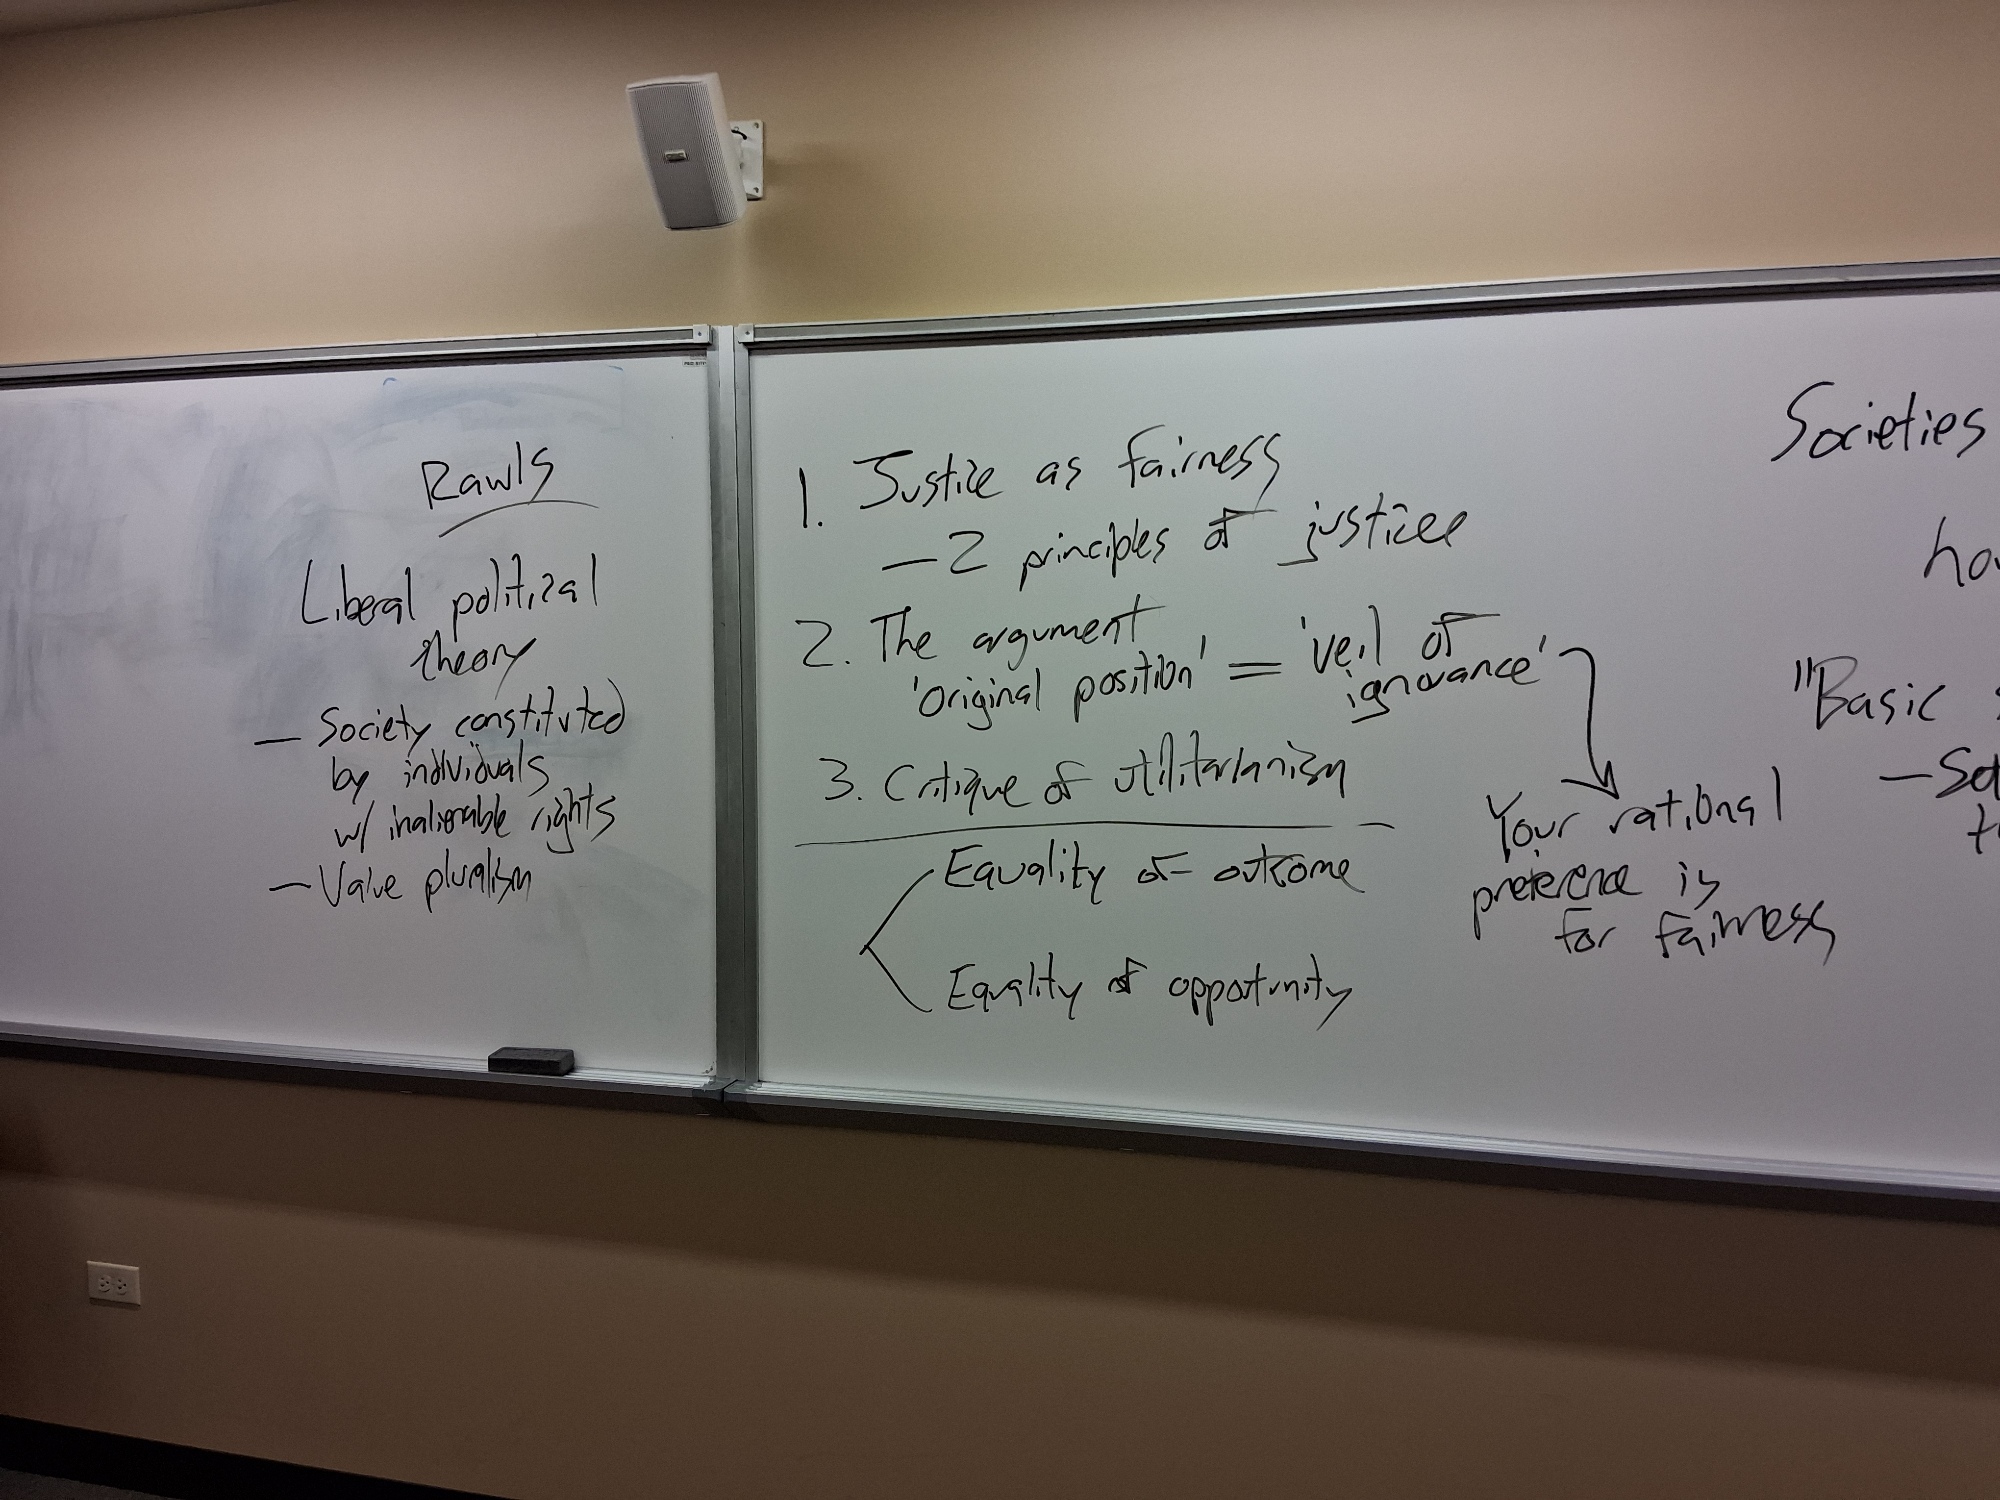 Rawls
Liberal political
theory
— Society constituted
by individuals
w/ inalienable rights
— Value pluralism
1. Justice as fairness
— 2 principles of justice
2. The argument
'original position' = 'veil of
ignorance'
3. Critique of utilitarianism
Equality of outcome
Equality of opportunity
Your rational
preference is
for fairness
Societies
"Basic